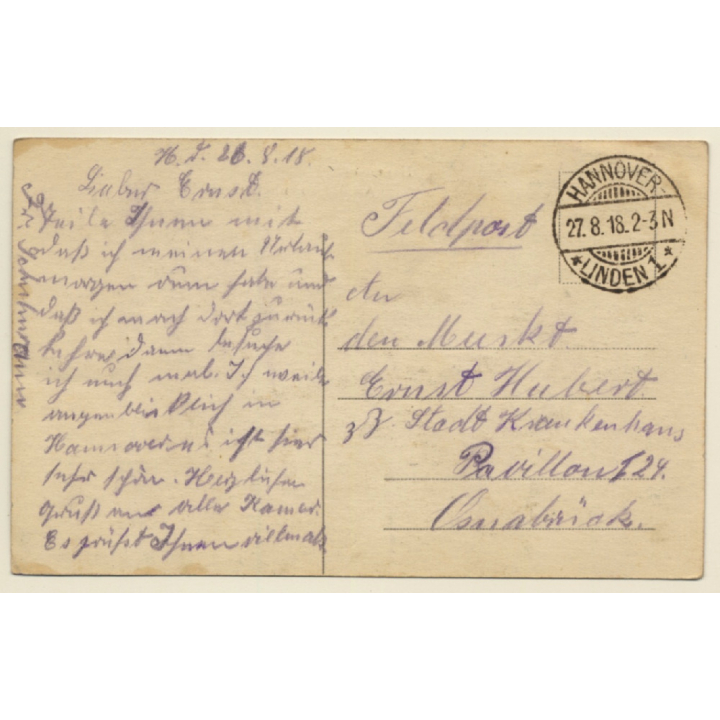 H. d. 26.8.18.
Lieber Ernst.
Teile Ihnen mit
daß ich meinen Urlaub
morgen rum habe und
daß ich nach dort zurück
kehre, dann besuche
ich auch mal. Ich weile
augenblicklich in
Hannover es ist hier
sehr schön. Herzlichen
Gruß an alle Kamer.
Es grüßt Ihnen vielmals
HANNOVER-
27.8.18.2-3N
*LINDEN 1*
Feldpost
An
den Muskt
Ernst Hubert
z Z Stadt Krankenhaus
Pavillon 124.
Osnabrück.